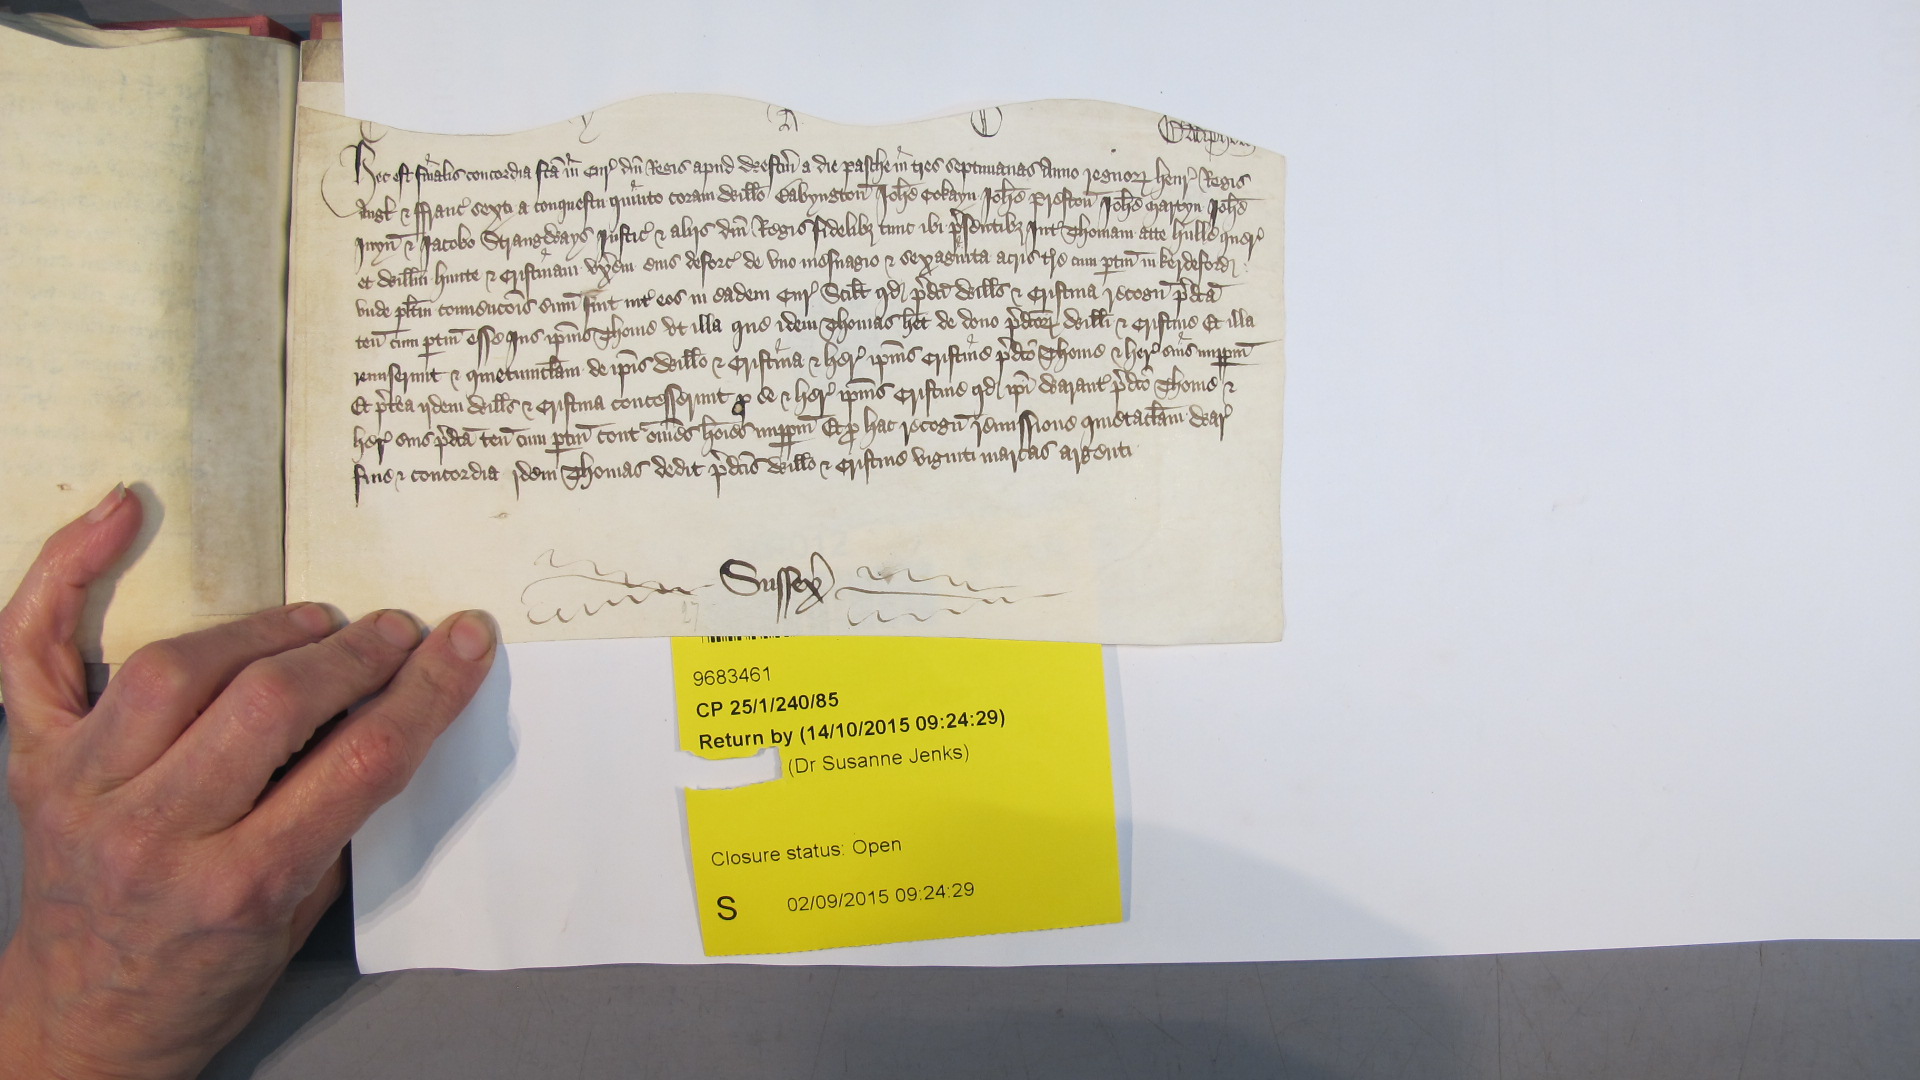 Hec est finalis concordia fcã in Cur dñi Regis apud Westm̃ a die pasche in tres septimanas Anno regnor Henr Regis
Angl & Franc sexti a conquestu quinto coram Willo Babyngton Johe Cokayn Johe Preston Johe Martyn Johe
Juyn & Jacobo Strangways Justic & aliis dñi Regis fidelibȝ tunc ibi p̃sentibȝ Int Thomam atte Hulle quer
et Willm Hunte & Cristinam vxem eius deforc de vno mesuagio & sexaginta acris tre cum ptin in kerdeford
vnde plitm conuencois sum fuit int eos in eadem Cur Scilt qd p̃dci Wills & Cristina recogn p̃dcã
ten cum ptin esse Jus ipius Thome vt illa que idem Thomas het de dono p̃dcor Willi & Cristine Et illa
remiserunt & quietumclam de ipis Willo & Cristina & her ipius Cristine p̃dco Thome & her suis imppm
Et p̃tea iidem Wills & Cristina concesserunt p se & her ipius Cristine qd ipi Warant p̃dco Thome &
her suis p̃dcã ten cum ptin cont om̃es hoies imppm Et p hac recogn remissione quietaclam War
fine & concordia idem Thomas dedit p̃dcis Willo & Cristine viginti marcas argenti
Sussex
27
9683461
CP 25/1/240/85
Return by (14/10/2015 09:24:29)
(Dr Susanne Jenks)
Closure status: Open
S 02/09/2015 09:24:29